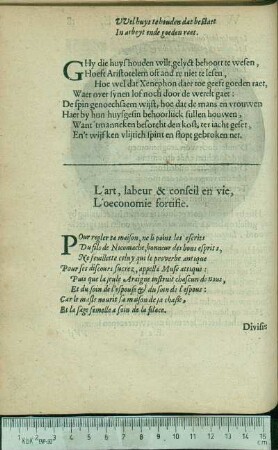 VVel huys te houden dat bestaet
In arbeyt ende goeden raet.
GHy die huys houden wilt, gelyct behoort te wesen,
Hoeft Aristotelem oft and're niet te lesen,
Hoe wel dat Xenephon daer toe geeft goeden raet,
Waer over synen lof noch door de werelt gaet:
De spin genoechsaem wijst, hoe dat de mans en vrouwen
Haer by hun huysgesin behoorlick sullen houwen,
Want 'tmanneken besorcht den kost, ter jacht geset,
En't wijfken vlijtich spint en stopt gebroken net.
L'art, labeur & conseil en vie,
L'oeconomie fortifie.
POur regler ta maison, ne li point les escrits
Du fils de Nicomache, honneur des bons esprits,
Ne feuillette celuy qui le proverbe antique
Pour ses discours succrez, appella Muse attique:
Puis que la seule Araigne instruit chascun de nous,
Et du soin de l'espouse & du soin de l'espous:
Car le masle nourrit sa maison de sa chasse,
Et la sage femelle a soin de la filace.
Divisis
cm 1 2 3 4 5 6 7 8 9 10 11 12 13 14 15